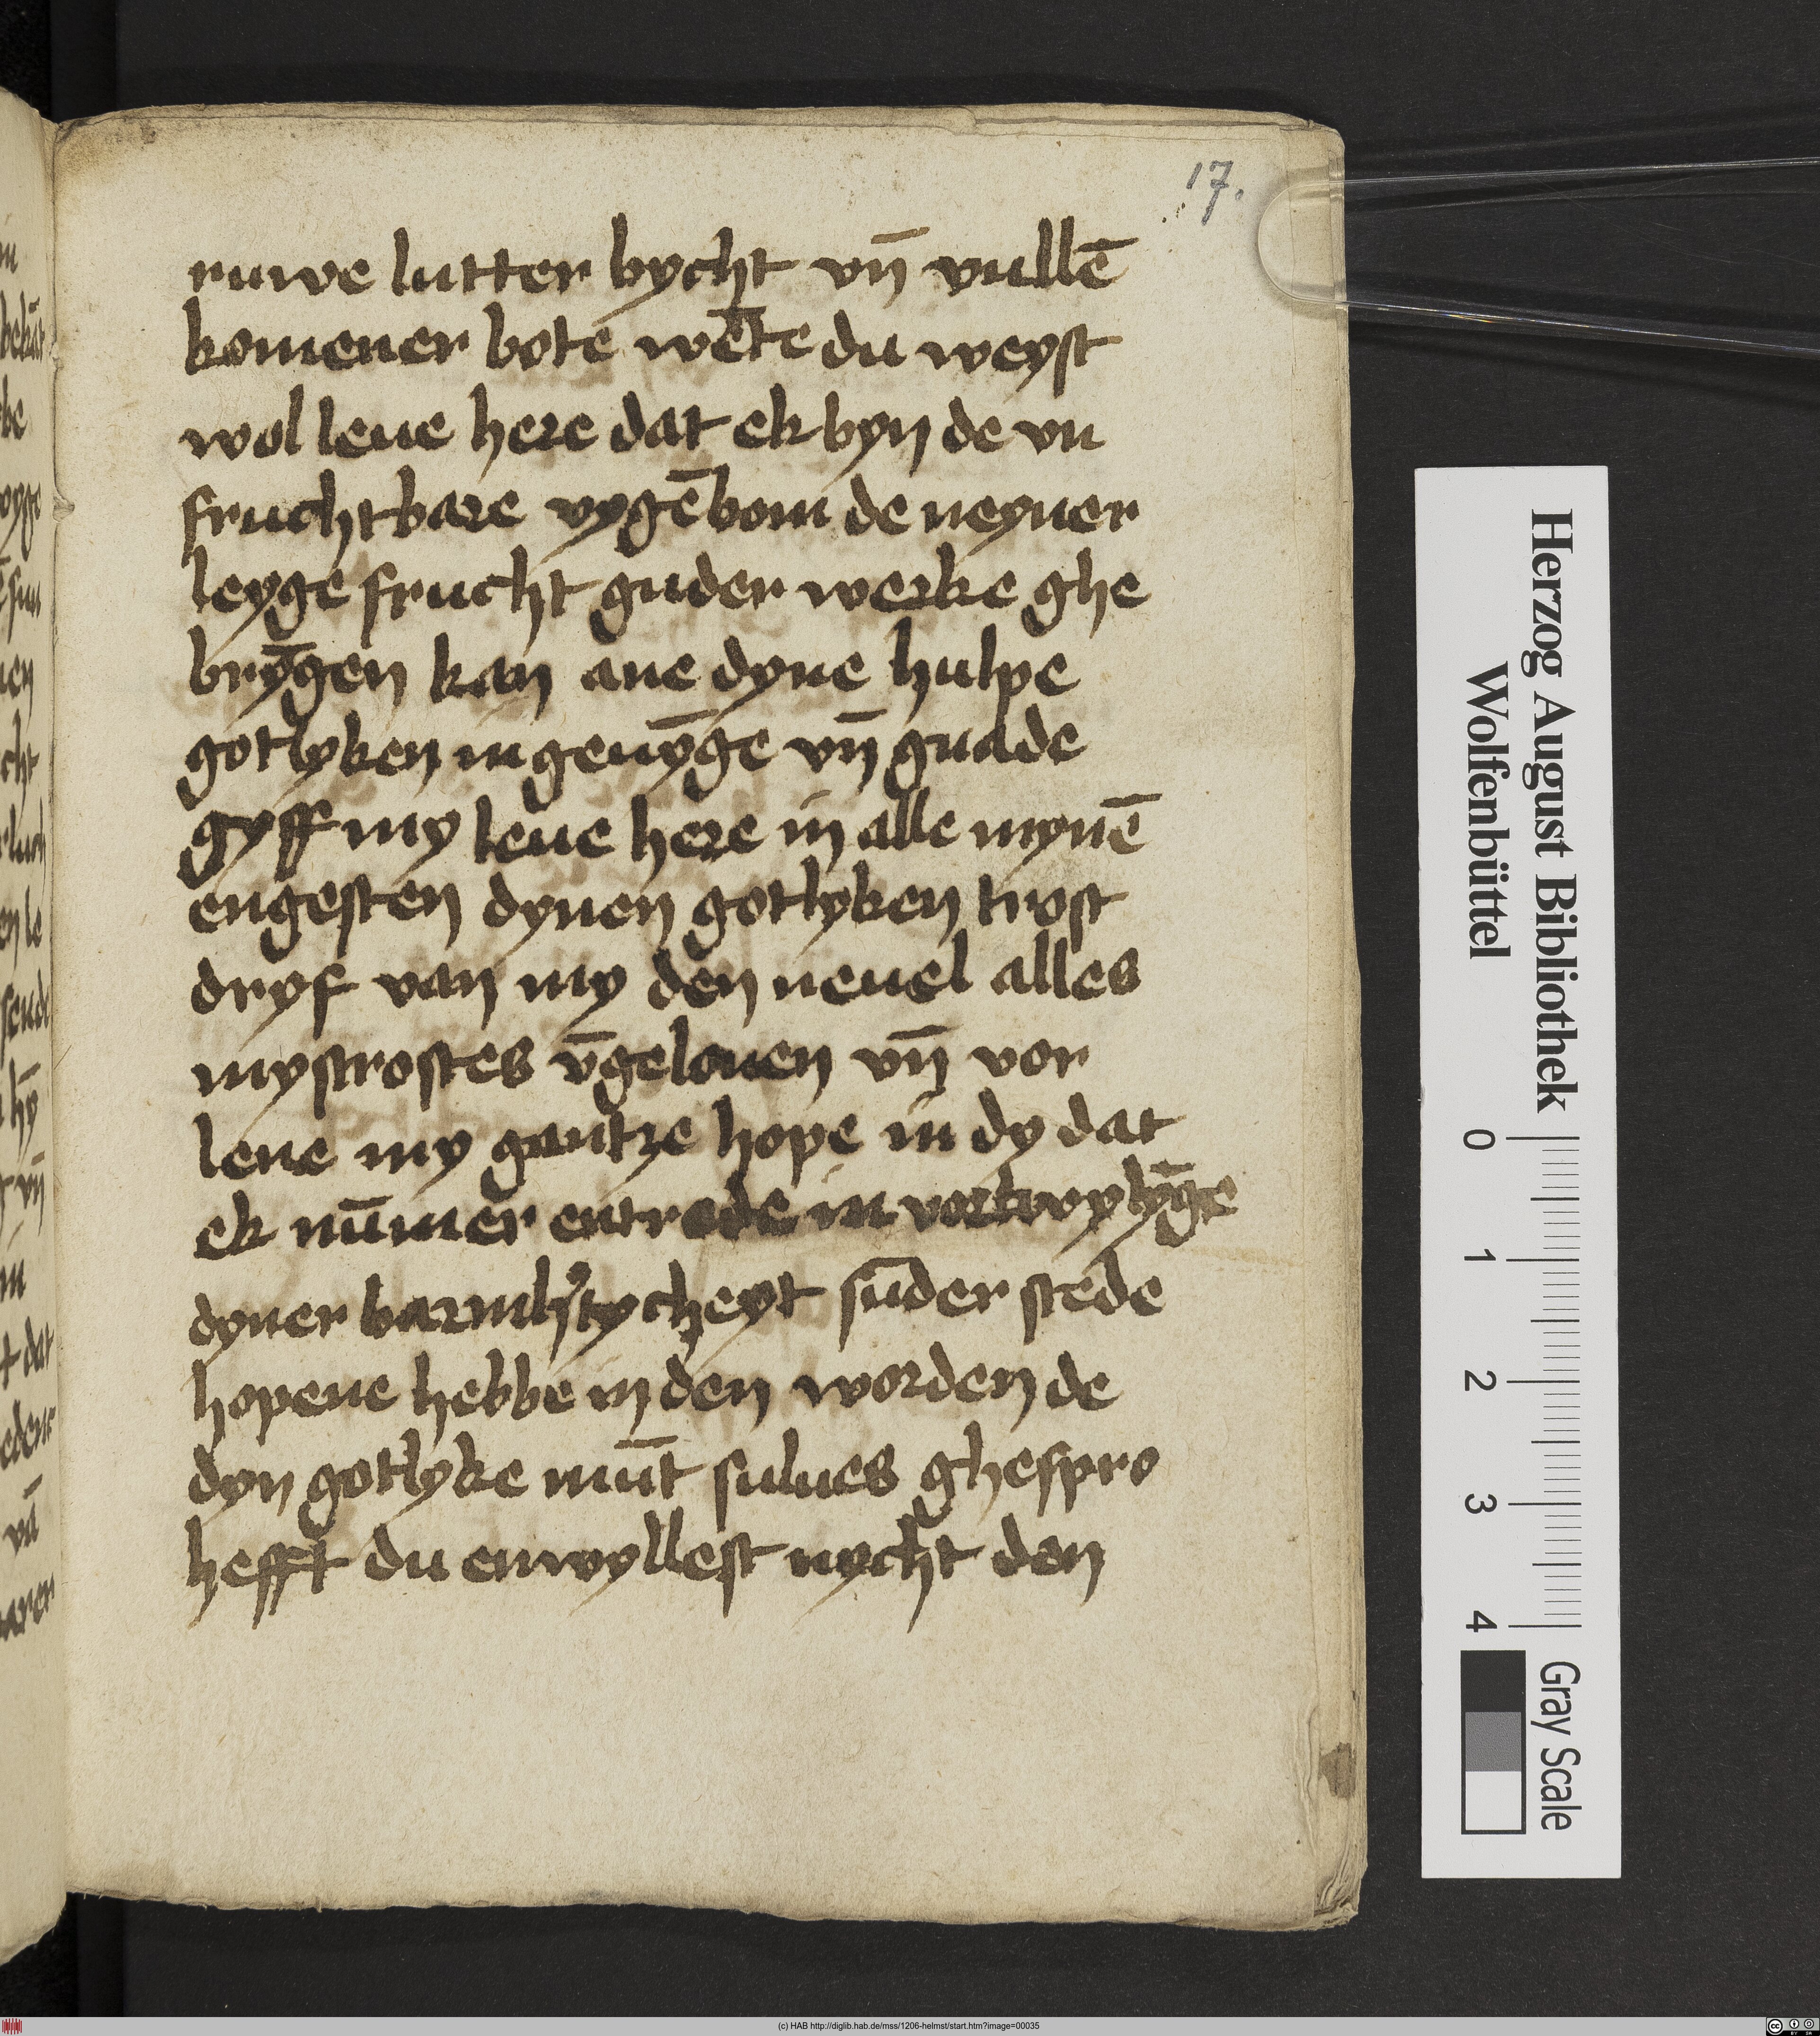 17.
ruwe lutter bycht vn̄ vullē
komener bote wēte du weyst
wol leue here dat ek byn de vn
fruchtbare vygēbom de neyner
leyge frucht guder werke ghe
brȳgen kan ane dyne hulpe
gotlyken ingeuȳge vn̄ gnade
gyff my leue here in alle mynē
engesten dynen gotlyken trost
dryf van my den neuel alles
mystrostes vn̄gelouen vn̄ vor
lene my gantze hope in dy dat
ek nūmer entrede in vortwylȳge
dyner barmh'tycheyt sūder stede
hopene hebbe in den worden de
dyn gotlyke mūt sulues ghespro
hefft du enwyllest nycht den
Herzog August Bibliothek
Wolfenbüttel
0 1 2 3 4
Gray Scale
(c) HAB http://diglib.hab.de/mss/1206-helmst/start.htm?image=00035